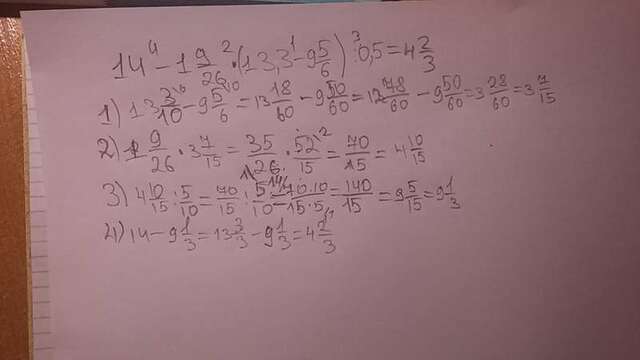 14 - 1 9/26 · (13,3 - 9 5/6) : 0,5 = 4 2/3
1) 13 3/10 - 9 5/6 = 13 18/60 - 9 50/60 = 12 78/60 - 9 50/60 = 3 28/60 = 3 7/15
2) 1 9/26 · 3 7/15 = 35/26 · 52/15 = 70/15 = 4 10/15
3) 4 10/15 : 5/10 = 70/15 : 5/10 = 140/15 = 9 5/15 = 9 1/3
4) 14 - 9 1/3 = 13 3/3 - 9 1/3 = 4 2/3